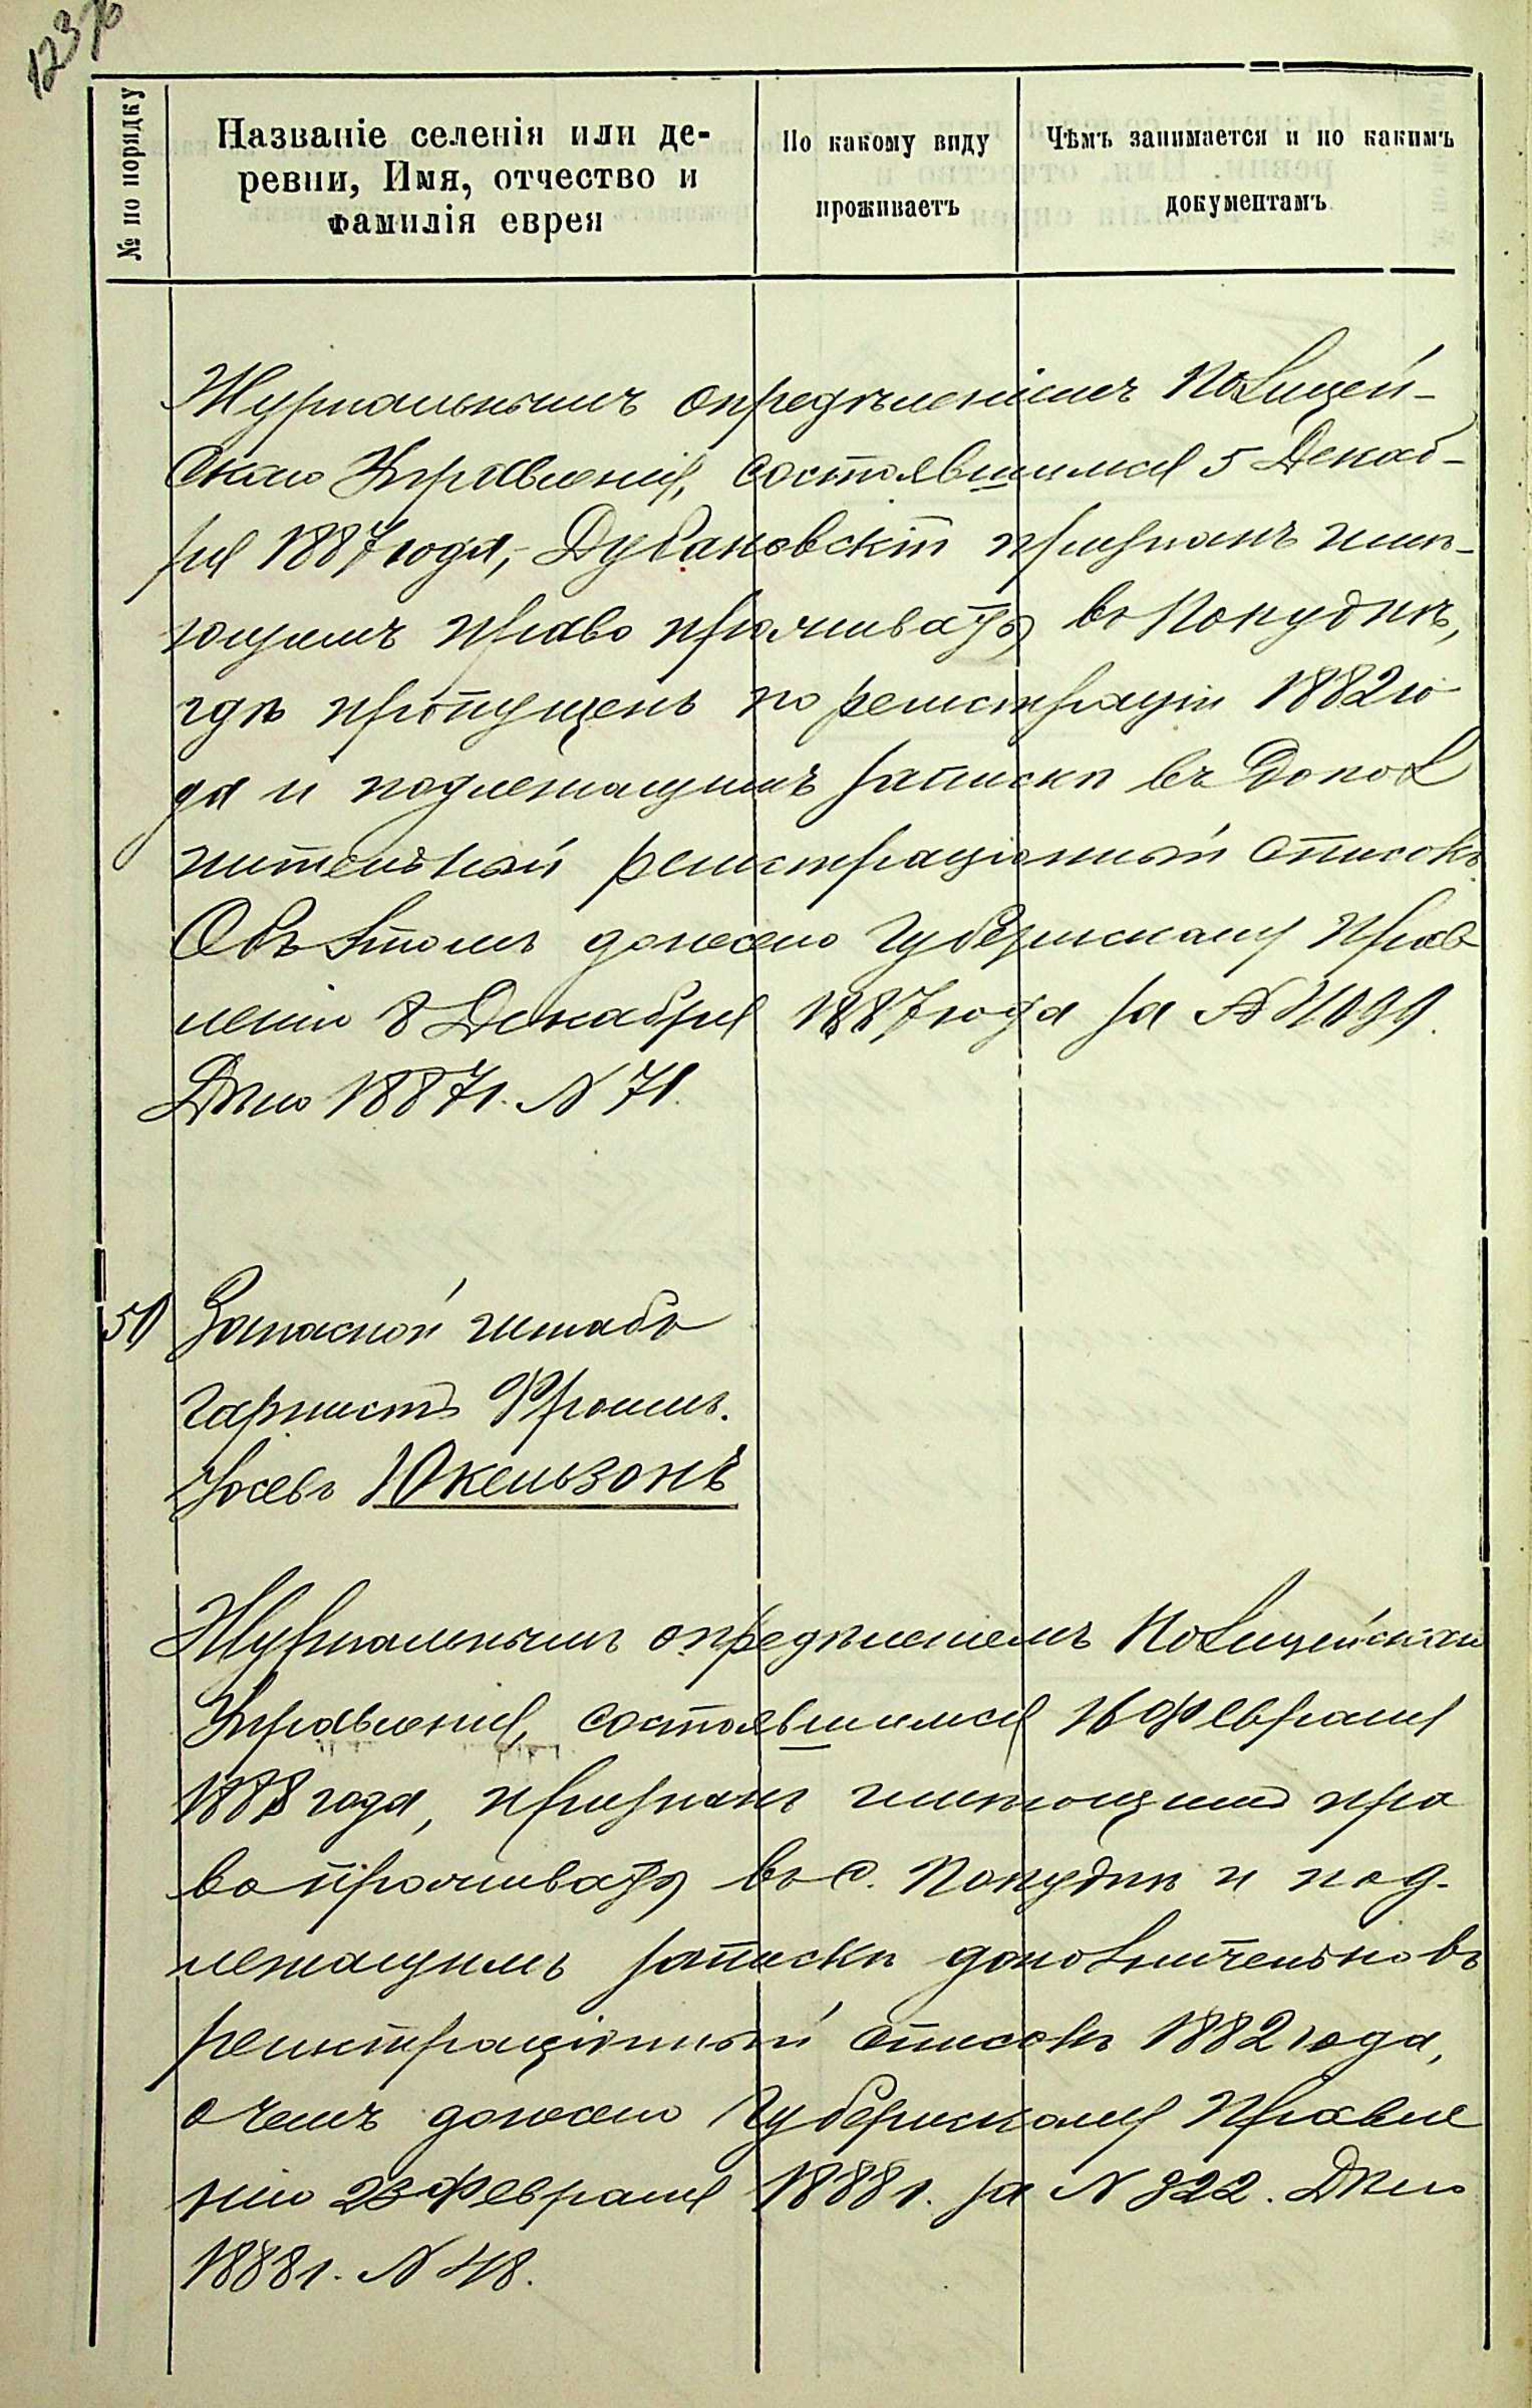 № по порядку
Названіе селенія или де-
ревни, Имя, отчество и
фамилія еврея
По какому виду
проживаетъ
Чѣмъ занимается и по какимъ
документамъ
Журнальнымъ опредѣленіемъ Полицей-
скаго Управленія, состоявшимся 5 Декаб-
ря 1887 года, Дубановскій признанъ имѣ-
ющимъ право проживать въ Покудкѣ,
гдѣ пропущенъ по регистраціи 1882 го
да и подлежащимъ запискѣ въ допол
нительный регистраціонный списокъ.
Объ этомъ донесено Губернскому Прав
ленію 8 Декабря 1887 года за №
Дѣло 1887 г. № 71.
Запасной штабъ
гарнистъ
Іосевъ Юкельзонъ
Журнальнымъ опредѣленіемъ Полицейскаго
Управленія, состоявшимся 16 Февраля
1888 года, признанъ имѣющимъ пра
во проживать въ с. Покудкѣ и под-
лежащимъ запискѣ дополнительно въ
регистраціонный списокъ 1882 года,
о чемъ донесено Губернскому Правле
нію 23 Февраля 1888 г. за № 322. Дѣло
1888 г. № 48.